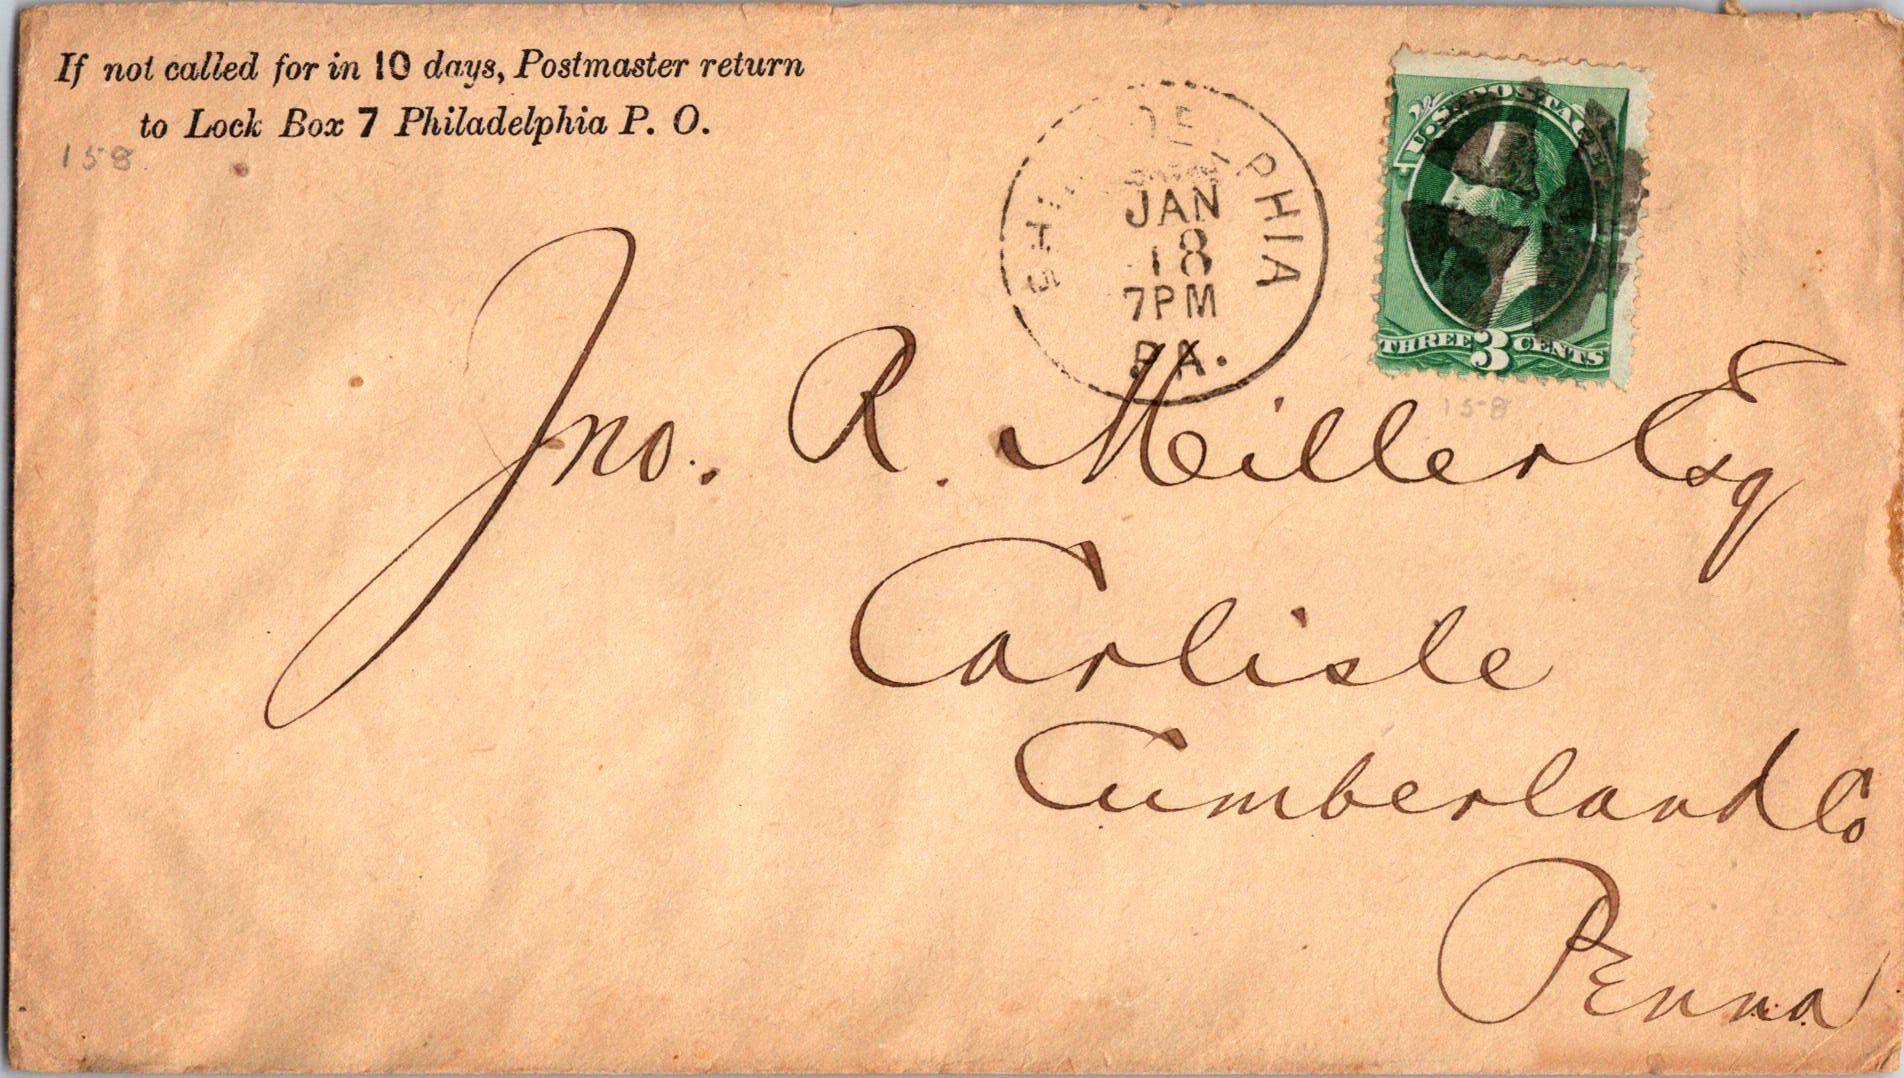 If not called for in 10 days, Postmaster return
to Lock Box 7 Philadelphia P. O.
158
PHILADELPHIA
JAN
18
7PM
PA.
U.S. POSTAGE
THREE 3 CENTS
158
Jno. R. Miller Esq
Carlisle
Cumberland Co
Penna